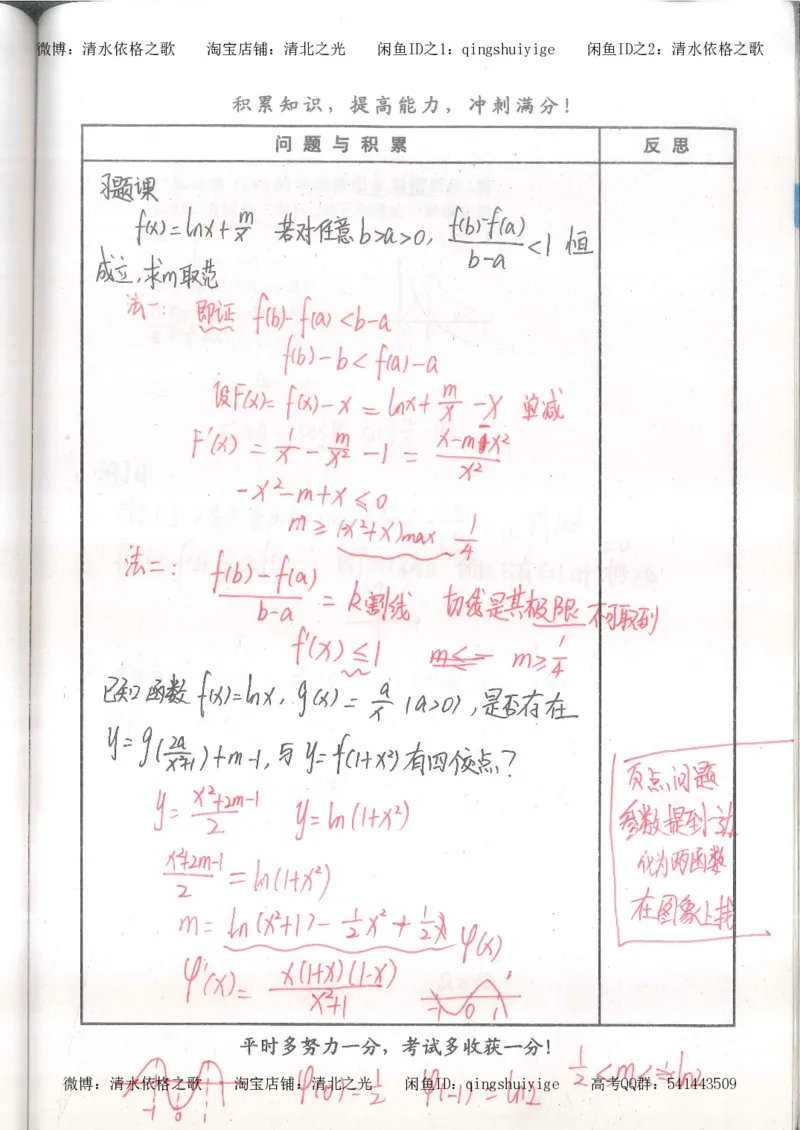 微博：清水依格之歌 淘宝店铺：清北之光 闲鱼ID之1：qingshuiyige 闲鱼ID之2：清水依格之歌
积累知识，提高能力，冲刺满分！
问 题 与 积 累 反 思
习题课
f(x)=lnx+m/x 若对任意b>a>0, (f(b)-f(a))/(b-a)<1 恒
成立,求m取范
法一: 即证 f(b)-f(a)<b-a
f(b)-b<f(a)-a
设F(x)=f(x)-x=lnx+m/x-x 单减
F'(x)=1/x-m/x²-1=(x-m-x²)/x²
-x²-m+x≤0
m≥(-x²+x)max 1/4
法二: (f(b)-f(a))/(b-a)=k割线 切线是其极限 不可取到
f'(x)≤1 m≥1/4
已知函数f(x)=lnx, g(x)=a/x (a>0),是否存在
y=g(2a/(x²+1))+m-1,与y=f(1+x²)有四个交点?
y=(x²+2m-1)/2 y=ln(1+x²)
(x²+2m-1)/2=ln(1+x²)
m=ln(x²+1)-1/2x²+1/2 φ(x)
φ'(x)=x(1+x)(1-x)/(x²+1)
-1 0 1
交点问题
参数提到一边
化为两函数
在图象上找
平时多努力一分，考试多收获一分！
微博：清水依格之歌 淘宝店铺：清北之光 闲鱼ID：qingshuiyige 高考QQ群：541443509
-1 0 1 φ(0)=1/2 φ(-1)=ln2 1/2<m<ln2